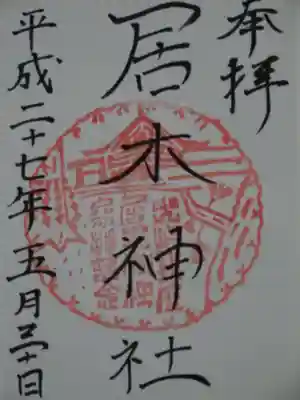 奉拝
居木神社
平成二十七年五月三十日